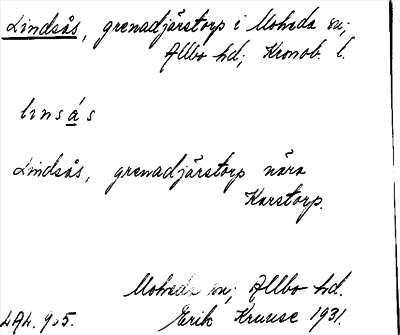 Lindsås, grenadjärstorp i Moheda sn;
Allbo hd; Kronob. l.
linsá̱s
Lindsås, grenadjärstorp nära
Karstorp.
Moheda sn; Allbo hd.
Erik Kruuse 1931.